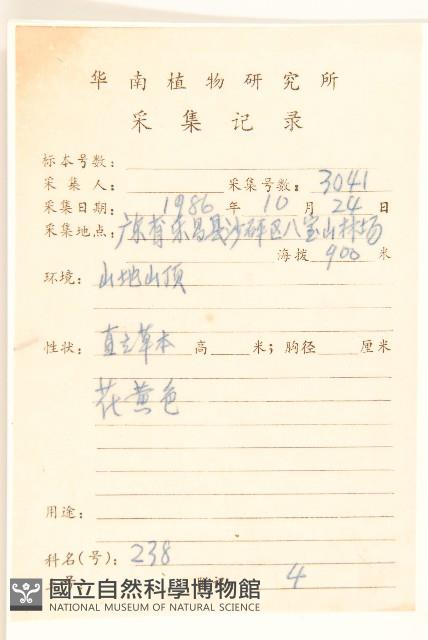 华南植物研究所
采集记录
标本号数：
采集人： 采集号数：3041
采集日期：1986年10月24日
采集地点：广东省乐昌县沙砰区八宝山林场
海拔 900 米
环境：山地山顶
性状：直立草本 高 米；胸径 厘米
花黄色
用途：
科名(号)：238
4
國立自然科學博物館
NATIONAL MUSEUM OF NATURAL SCIENCE